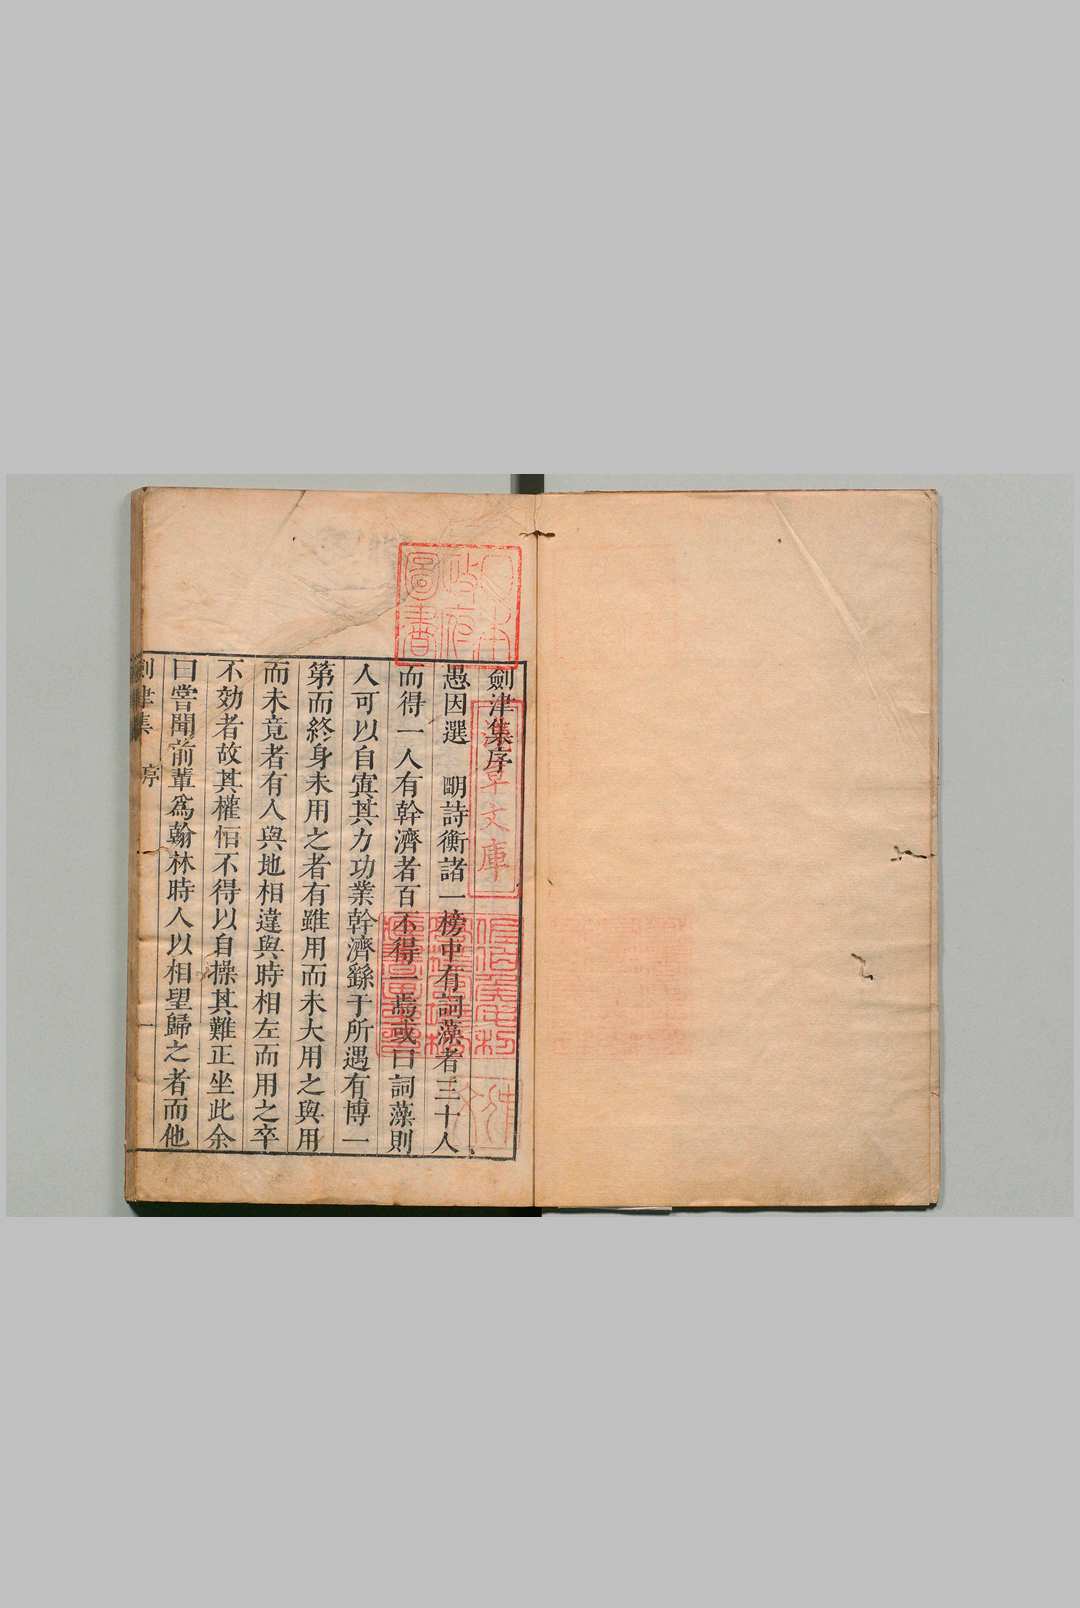 劍津集序
愚因選　明詩衡諸一榜中有詞藻者三十人
而得一人有幹濟者百不得一焉或曰詞藻則
人可以自寘其力功業幹濟繇于所遇有博一
第而終身未用之者有雖用而未大用之與用
而未竟者有人與地相違與時相左而用之卒
不効者故其權怕不得以自操其難正坐此余
曰嘗聞前輩為翰林時人以相望歸之者而他
劍津集　序　一
日本政府圖書
淺草文庫